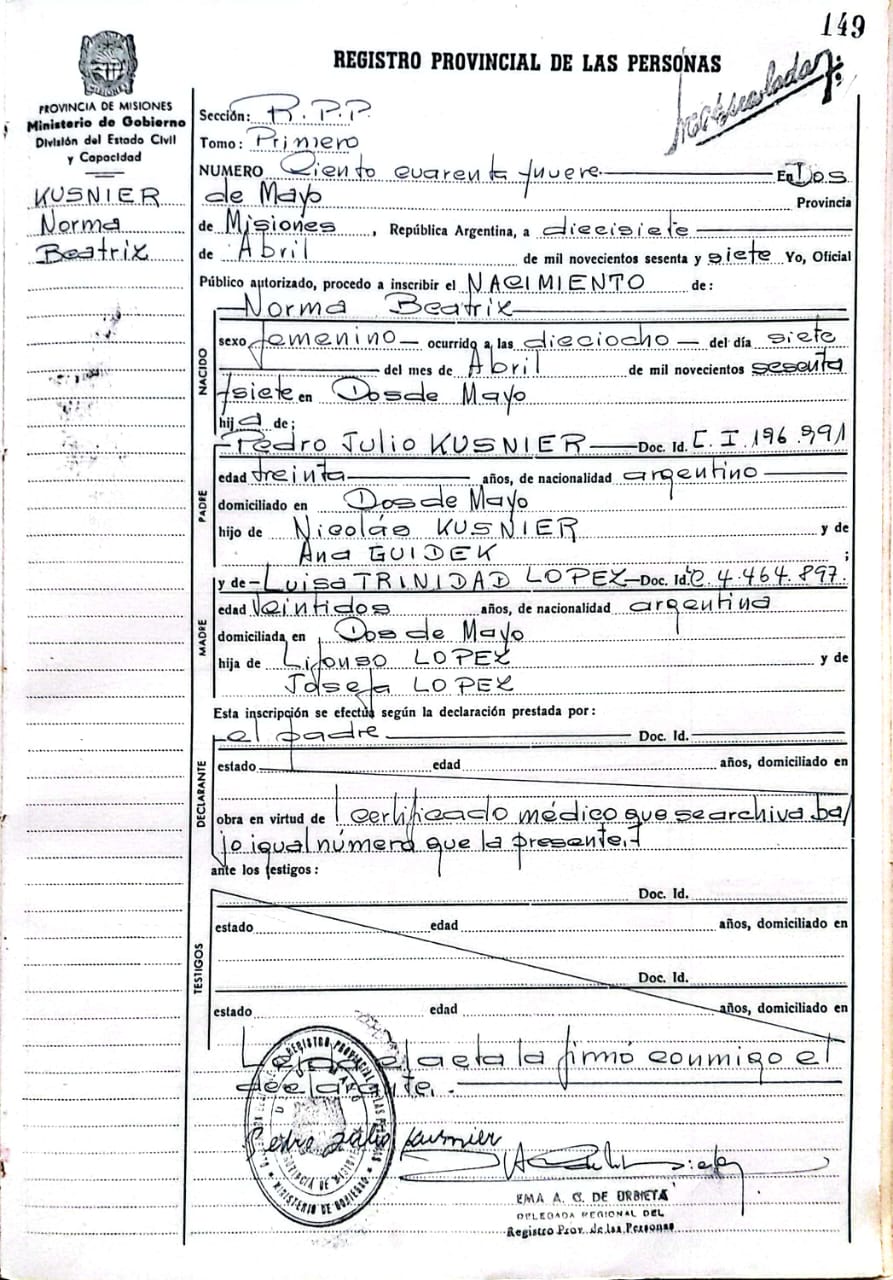 149
REGISTRO PROVINCIAL DE LAS PERSONAS
PROVINCIA DE MISIONES
Ministerio de Gobierno
División del Estado Civil
y Capacidad
KUSNIER
Norma
Beatrix
Sección: R.P.P.
Tomo: Primero
NUMERO Ciento cuarenta y nueve En Dos
de Mayo Provincia
de Misiones, República Argentina, a diecisiete
de Abril de mil novecientos sesenta y siete Yo, Oficial
Público autorizado, procedo a inscribir el NACIMIENTO de:
Norma Beatrix
NACIDO
sexo femenino ocurrido a las dieciocho del día siete
del mes de Abril de mil novecientos sesenta
y siete en Dos de Mayo
hija de:
PADRE
Pedro Julio KUSNIER Doc. Id. C.I. 196.991
edad treinta años, de nacionalidad argentino
domiciliado en Dos de Mayo
hijo de Nicolás KUSNIER y de
Ana GUIDEK ;
MADRE
y de Luisa TRINIDAD LOPEZ Doc. Id. C. 4.464.897.
edad veintidos años, de nacionalidad argentina
domiciliada en Dos de Mayo
hija de Lifonso LOPEZ y de
Josefa LOPEZ
Esta inscripción se efectúa según la declaración prestada por:
DECLARANTE
el padre Doc. Id.
estado edad años, domiciliado en
obra en virtud de certificado médico que se archiva ba/
jo igual número que la presente.
ante los testigos:
TESTIGOS
Doc. Id.
estado edad años, domiciliado en
Doc. Id.
estado edad años, domiciliado en
Leída el acta la firmó conmigo el
declarante.
Pedro Julio Kusnier
EMA A. G. DE URBIETA
DELEGADA REGIONAL DEL
Registro Prov. de las Personas